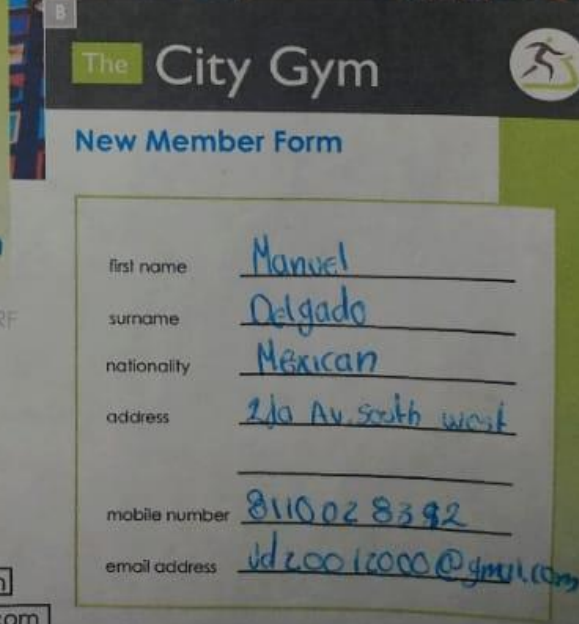 B
The City Gym
New Member Form
first name Manuel
surname Delgado
nationality Mexican
address 2da Av. south west
mobile number
email address
RF
com